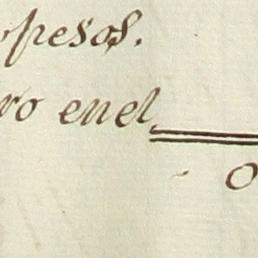 pesos.
ro enel
o